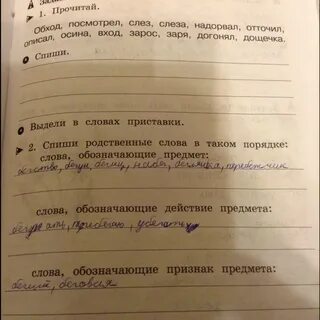 1. Прочитай.
Обход, посмотрел, слез, слеза, надорвал, отточил,
описал, осина, вход, зарос, заря, догонял, дощечка.
Спиши.
Выдели в словах приставки.
2. Спиши родственные слова в таком порядке:
слова, обозначающие предмет:
бегство, бегун, набег, перебежчик
слова, обозначающие действие предмета:
перебегаю, убегать
слова, обозначающие признак предмета:
беговая